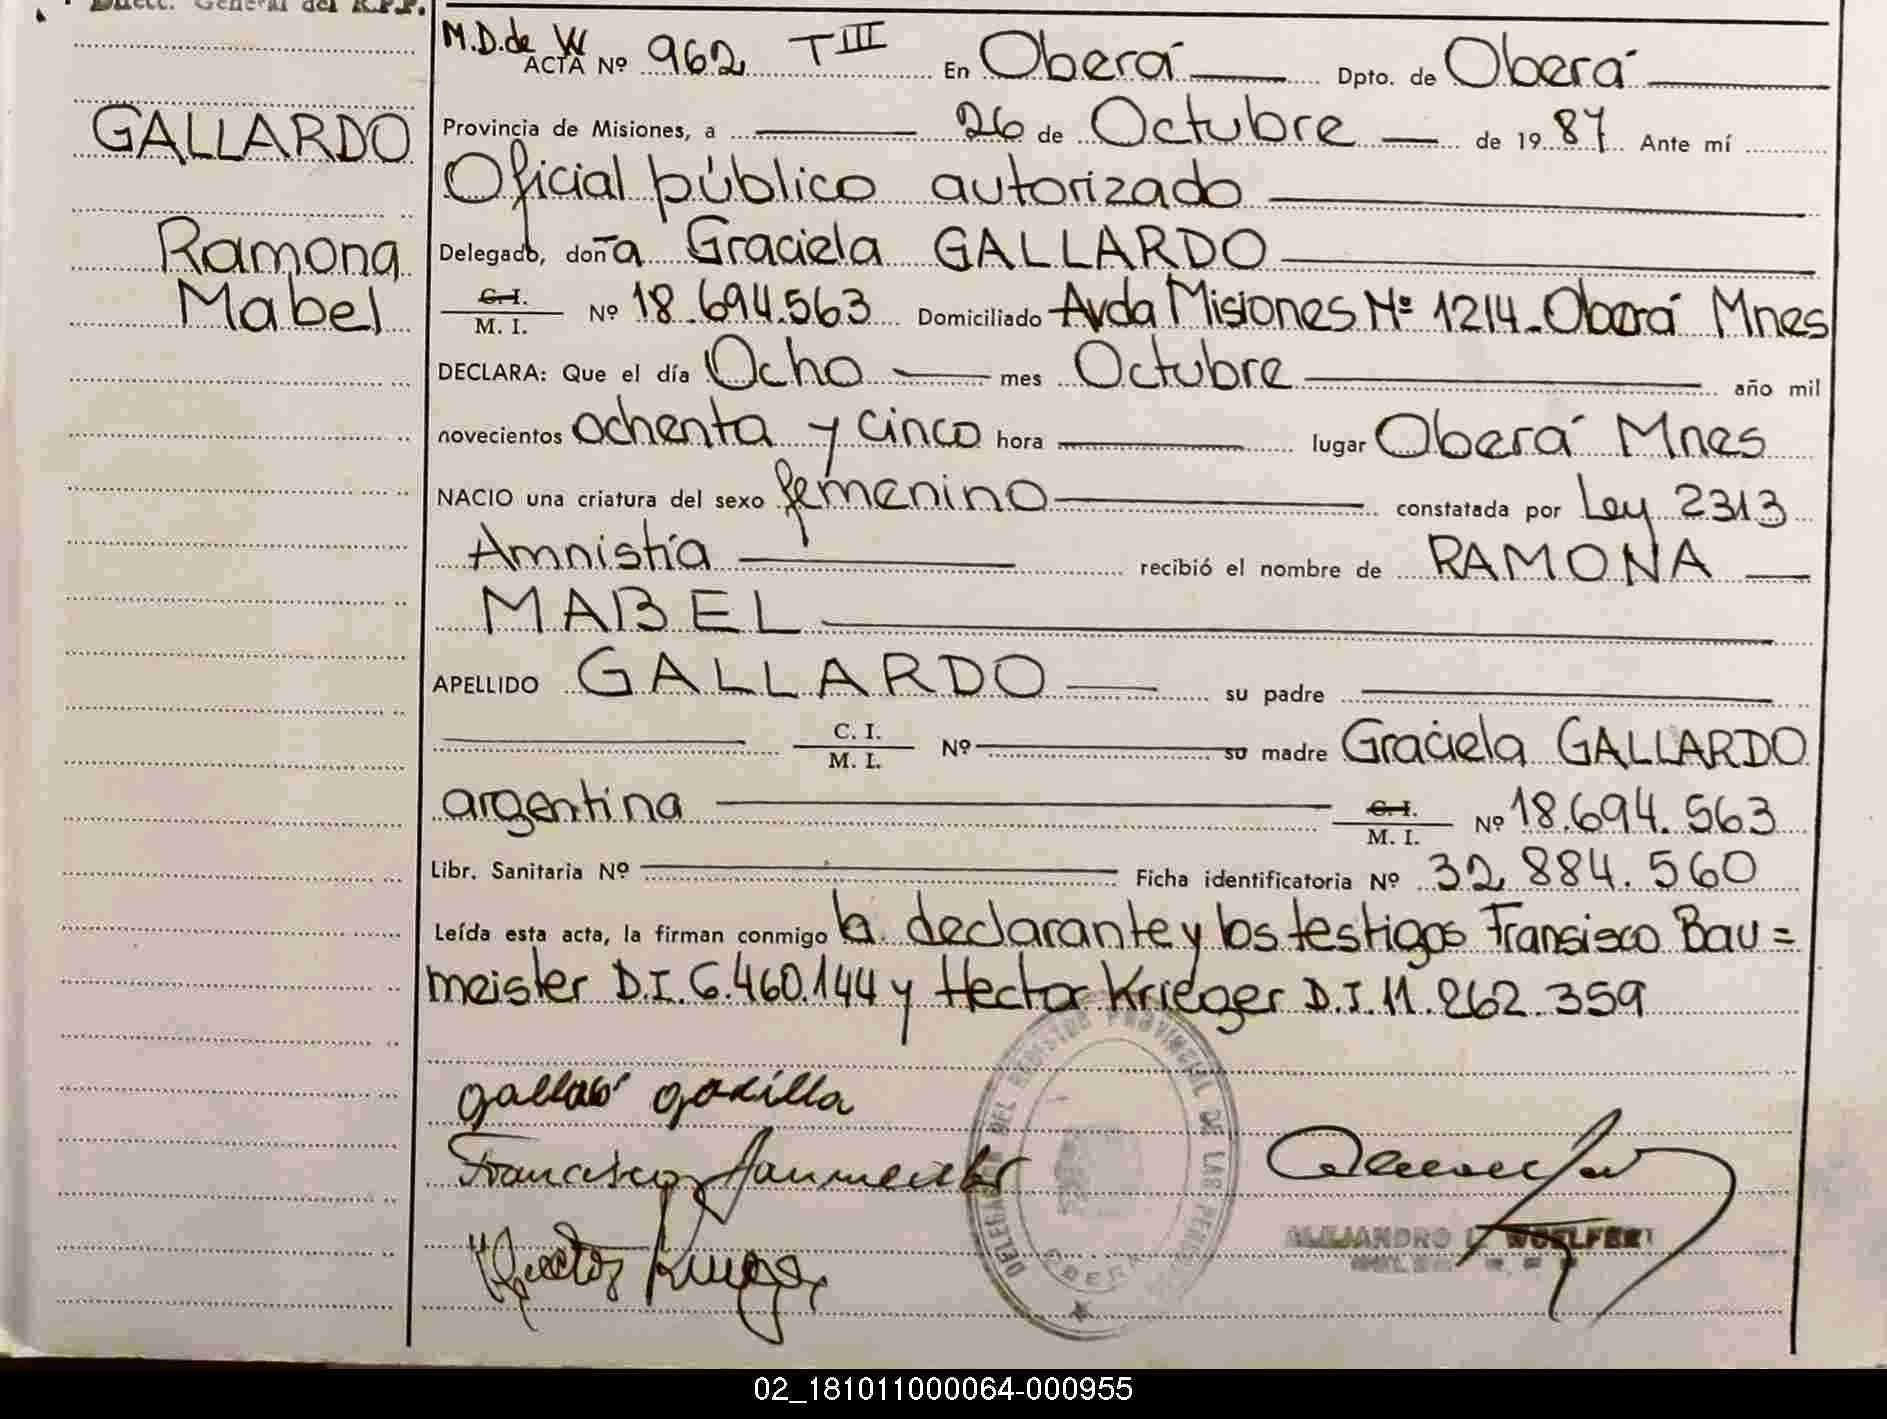 Direct. General del R.P.P.
GALLARDO
Ramona
Mabel
M.D. de W
ACTA Nº 962 T III En Oberá Dpto. de Oberá
Provincia de Misiones, a 26 de Octubre de 1987 Ante mí
Oficial público autorizado
Delegado, doña Graciela GALLARDO
C. I.
M. I. Nº 18.694.563 Domiciliado Avda Misiones Nº 1214. Oberá Mnes
DECLARA: Que el día Ocho mes Octubre año mil
novecientos ochenta y cinco hora lugar Oberá Mnes
NACIO una criatura del sexo femenino constatada por Ley 2313
Amnistía recibió el nombre de RAMONA
MABEL
APELLIDO GALLARDO su padre
C. I.
M. I. Nº su madre Graciela GALLARDO
argentina C. I.
M. I. Nº 18.694.563
Libr. Sanitaria Nº Ficha identificatoria Nº 32 884.560
Leída esta acta, la firman conmigo la declarante y los testigos Fransisco Bau=
meister D.I. 6.460.144 y Hector Krieger D.I. 11.262.359
Francisco
Hector
DELEGACION DEL REGISTRO PROVINCIAL DE LAS PERSONAS
OBERA
ALEJANDRO WOELFERT
02_181011000064-000955